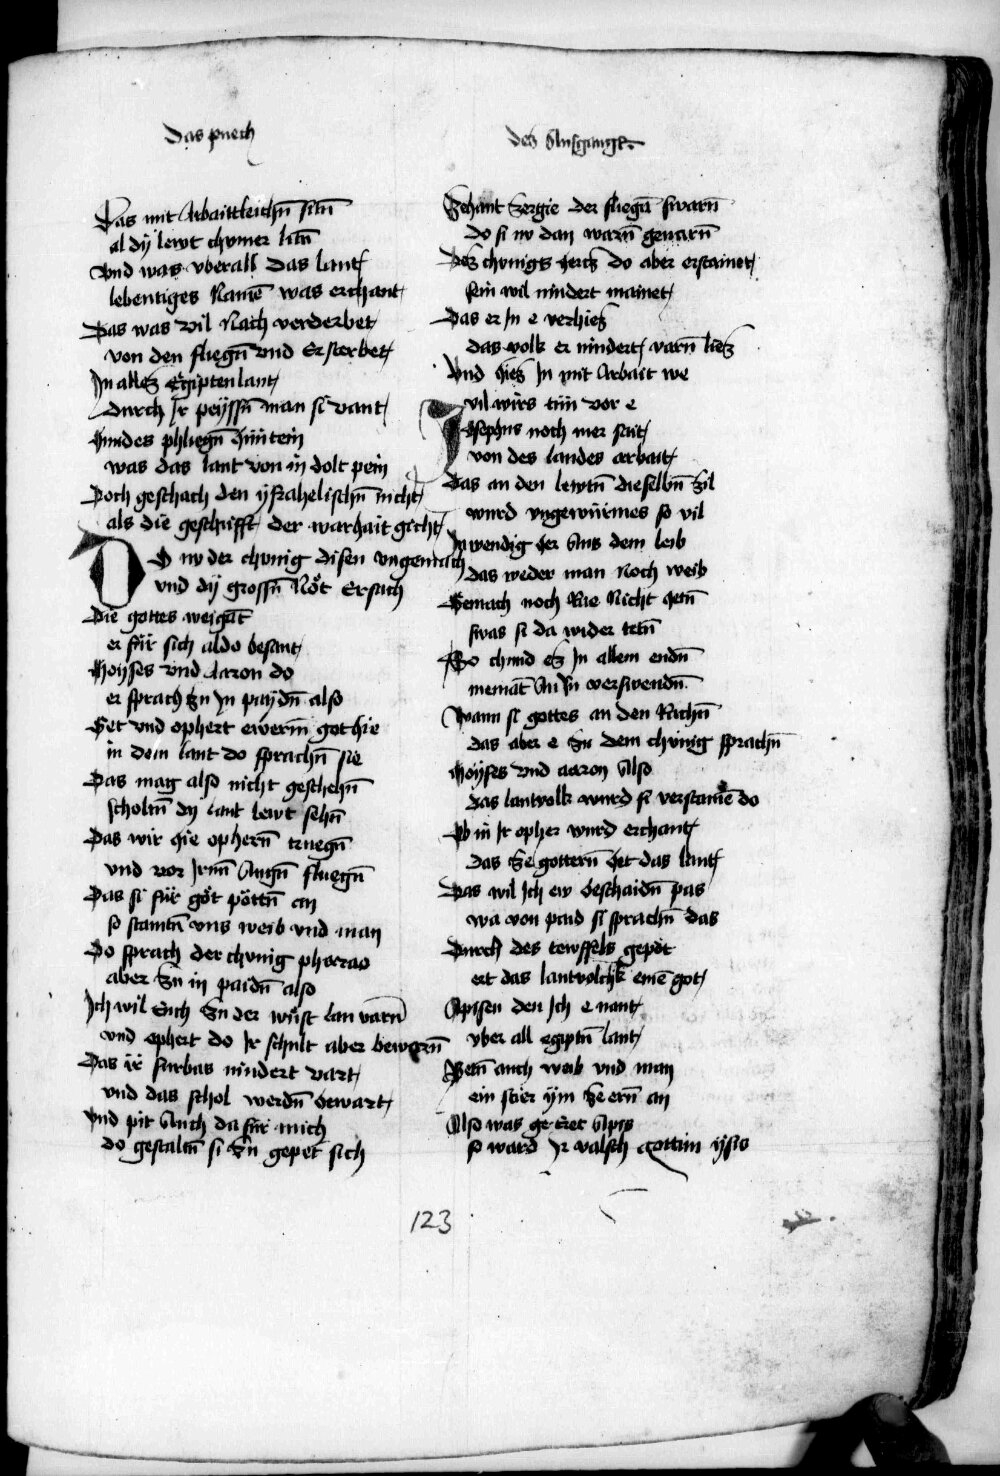 Das puech
des Ausgangk
Das mit Arbaittleichn̄ sitn̄
al dÿ lewt chomer litn̄
Vnd was vberall das lant
lebentiges Namē was erchant
Das was vil Nach verderbet
von den fliegn̄ vnd Ersterbet
In alles Egipten lant
durch Ir peÿssn̄ man si vant
Hundes phliegn̄
was das lant von in dolt pein
Doch geschach den ÿsrahelischn̄ nicht
als die geschrifft der warhait gicht
DO nv der chvnig disen vngemach
vnd dÿ grossn̄ Nöt Ersach
Die gottes weigāt
er für sich aldo besant
Moÿses vnd Aaron do
er sprach zu In paÿdn̄ also
Get vnd ophert ewerm̄ got hie
in dem lant do sprachn̄ sie
Das mag also nicht geschehn̄
scholtn̄ dy lant lewt sehn̄
Das wir hie ophern̄ truegn̄
vnd vor Irnn̄ Augn̄ sluegn̄
Das si für göt pöttn̄ an
so stamtn̄ vns weib vnd man
Do sprach der chvnig pharao
aber Zu in paidn̄ also
Ich wil Euch Zu der wüst lan varn̄
vnd ophert do Ir schult aber bewarn̄
Das ir furbas nindert vart
vnd das schol werdn̄ bewart
Vnd pit Auch da für mich
do gestaltn̄ si Zu gepet sich
Zehant Zergie der fliegn̄ swarn̄
do si nv dan warn̄ gevarn̄
Des chvnigs hercz do aber erstainet
sein wil nindert mainet
Das er In e verhies
das volk er nindert varn̄ lies
Vnd hies In mit Arbait we
vil wirs tün vor e
Josephus noch mer sait
von des landes arbait
Das an den lewtn̄ dieselbn̄ Zil
wurd vngewürmes so vil
Inwendig her Aus dem leib
das weder man Noch weib
Gemach noch Rue Nicht hetn̄
swas si da wider tetn̄
So chund es In allem endn̄
niemāt An In verswendn̄
Wann si gottes an den Rachn̄
das aber e Zu dem chvnig sprachn̄
Moÿses vnd aaron Also
das lantvolk wurd si verstainē do
Ob in Ir opher wurd erchant
das Ze gottern̄ het das lant
Das wil Ich ew beschaidn̄ pas
wa von paid si sprachn̄ das
Durch des tewffels gepöt
ert das lantvolchk einē got
Apisen den Ich e nant
vber all egiptn̄ lant
Betn̄ auch weib vnd man
ein stier ÿm Ze ern̄ an
Also was geeret Apis
so ward Ir valsch gottin ÿsis
123